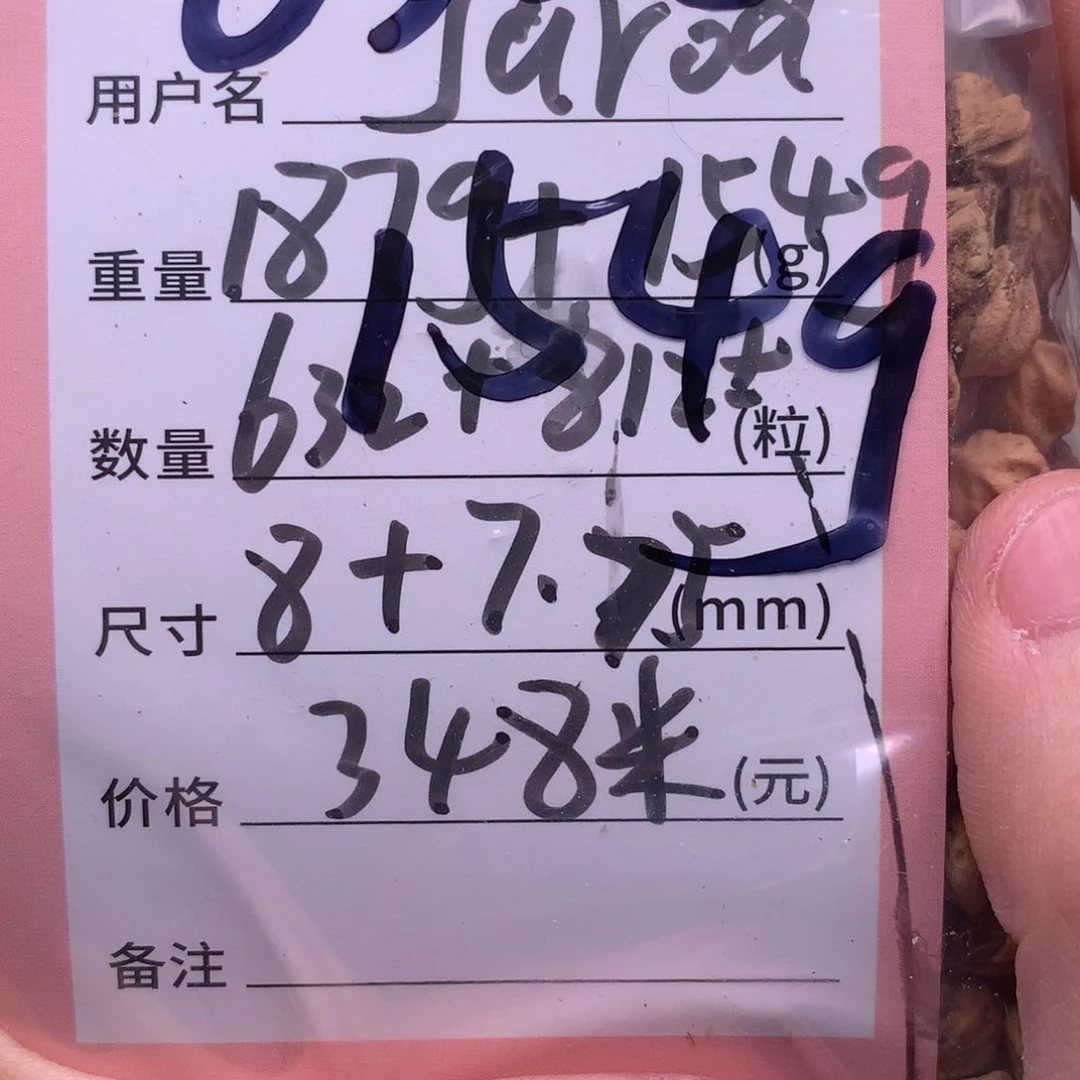 用户名 Jarod
重量 187g+154g (g)
154g
数量 632+812 (粒)
尺寸 8+7.75 (mm)
价格 348米 (元)
备注